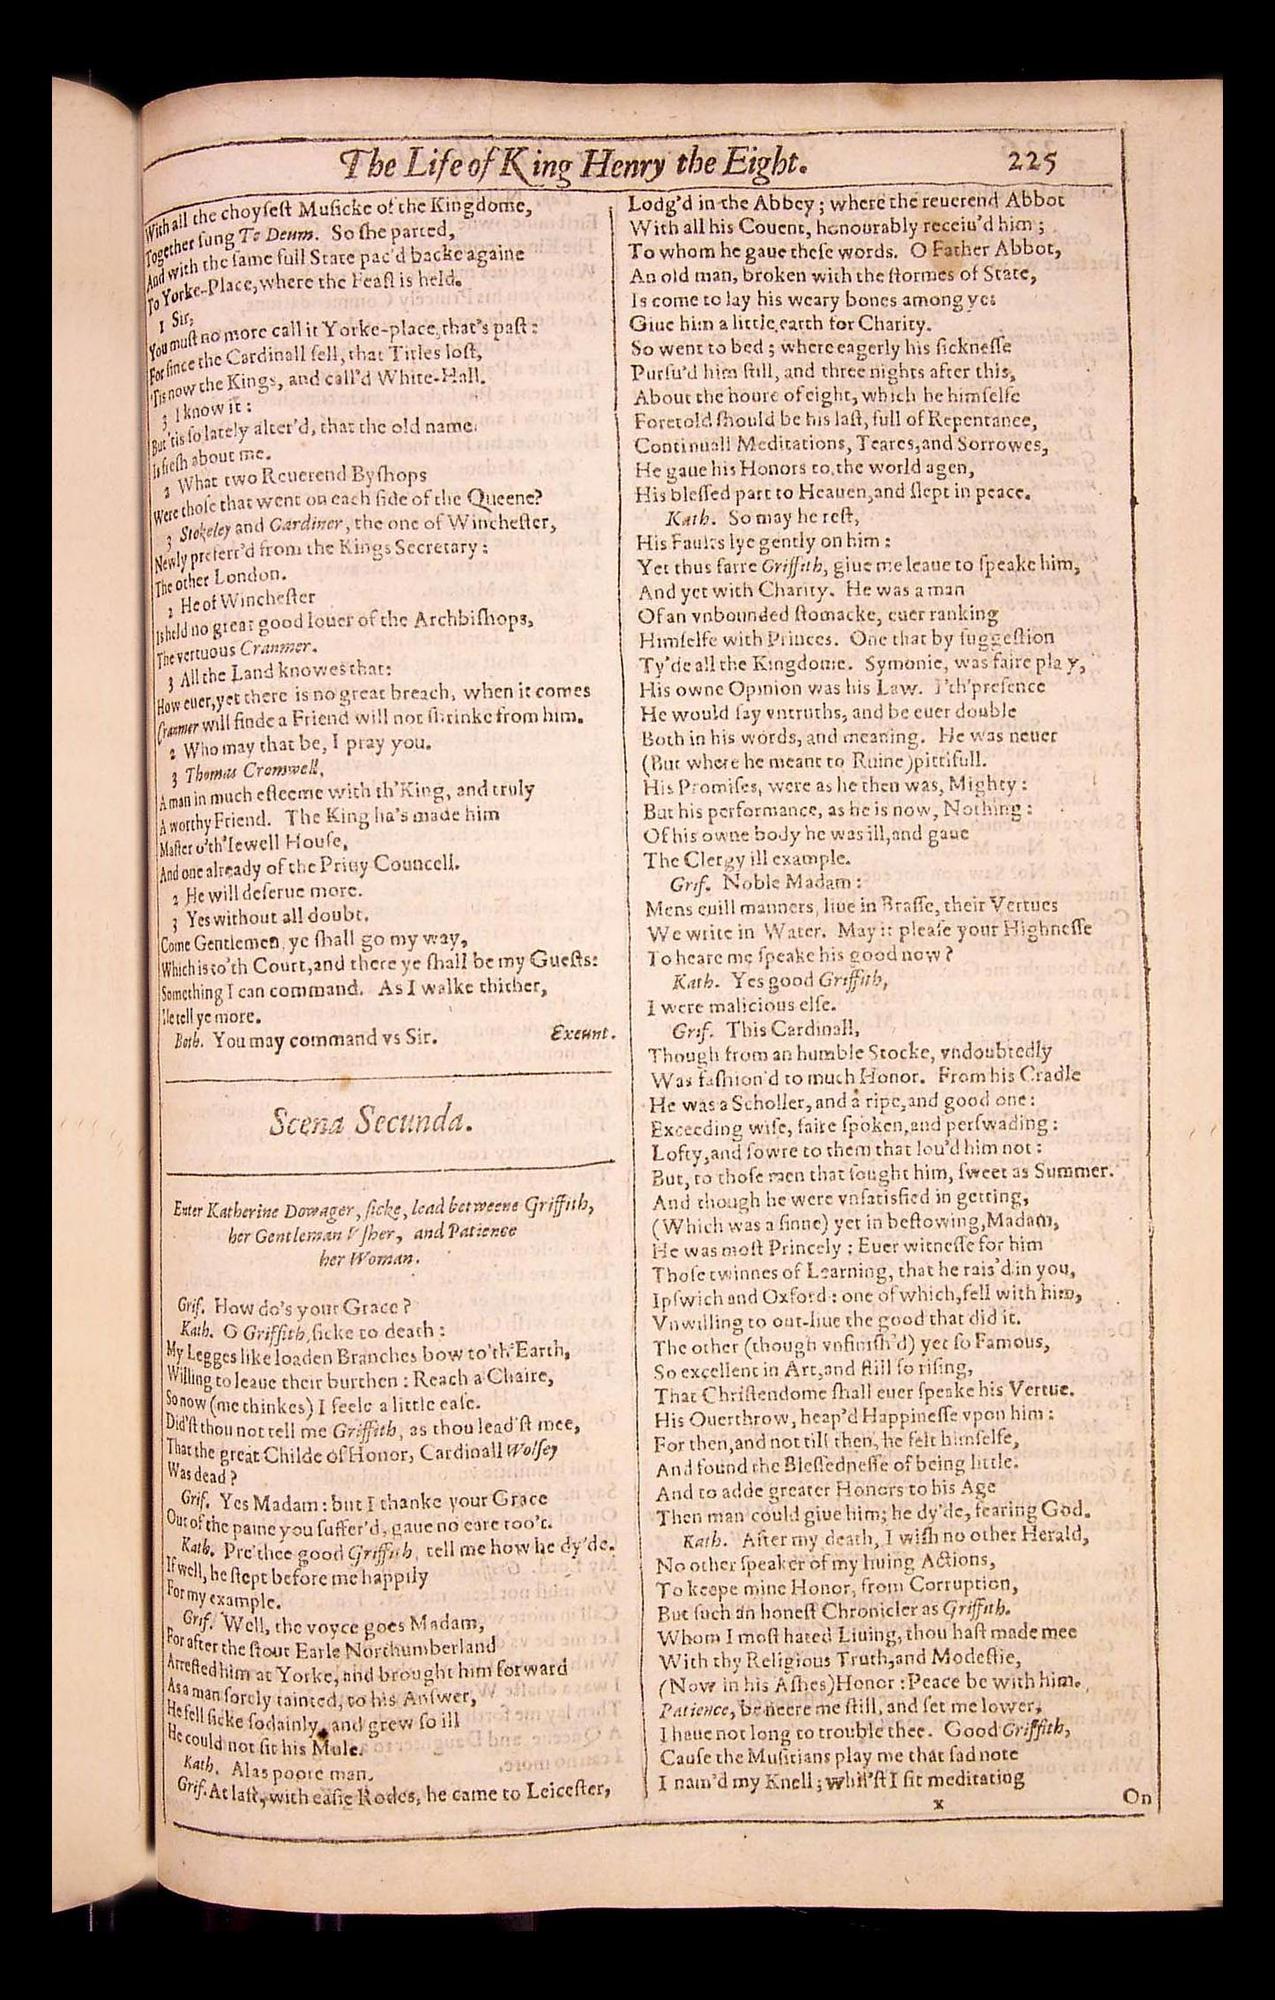 The Life of King Henry the Eight. 225
With all the choyſeſt Muſicke of the Kingdome,
Together ſung Te Deum. So ſhe parted,
And with the ſame full State pac'd backe againe
To Yorke-Place, where the Feaſt is held.
1 Sir,
You muſt no more call it Yorke-place, that's paſt:
For ſince the Cardinall fell, that Titles loſt,
'Tis now the Kings, and call'd White-Hall.
3 I know it:
But 'tis ſo lately alter'd, that the old name
Is freſh about me.
2 What two Reuerend Byſhops
Were thoſe that went on each ſide of the Queene?
3 Stokeley and Gardiner, the one of Wincheſter,
Newly preferr'd from the Kings Secretary:
The other London.
2 He of Wincheſter
Is held no great good louer of the Archbiſhops,
The vertuous Cranmer.
3 All the Land knowes that:
How euer, yet there is no great breach, when it comes
Cranmer will finde a Friend will not ſhrinke from him.
2 Who may that be, I pray you.
3 Thomas Cromwell,
A man in much eſteeme with th'King, and truly
A worthy Friend. The King ha's made him
Maſter o'th'Iewell Houſe,
And one already of the Priuy Councell.
2 He will deſerue more.
3 Yes without all doubt.
Come Gentlemen, ye ſhall go my way,
Which is to'th Court, and there ye ſhall be my Gueſts:
Something I can command. As I walke thither,
Ile tell ye more.
Both. You may command vs Sir. Exeunt.
Scena Secunda.
Enter Katherine Dowager, ſicke, lead betweene Griffith,
her Gentleman Vſher, and Patience
her Woman.
Grif. How do's your Grace?
Kath. O Griffith, ſicke to death:
My Legges like loaden Branches bow to'th'Earth,
Willing to leaue their burthen: Reach a Chaire,
So now (me thinkes) I feele a little eaſe.
Did'ſt thou not tell me Griffith, as thou lead'ſt mee,
That the great Childe of Honor, Cardinall Wolſey
Was dead?
Grif. Yes Madam: but I thanke your Grace
Out of the paine you ſuffer'd, gaue no eare too't.
Kath. Pre'thee good Griffith, tell me how he dy'de.
If well, he ſtept before me happily
For my example.
Grif. Well, the voyce goes Madam,
For after the ſtout Earle Northumberland
Arreſted him at Yorke, and brought him forward
As a man ſorely tainted, to his Anſwer,
He fell ſicke ſodainly, and grew ſo ill
He could not ſit his Mule.
Kath. Alas poore man.
Grif. At laſt, with eaſie Rodes, he came to Leiceſter,
Lodg'd in the Abbey; where the reuerend Abbot
With all his Couent, honourably receiu'd him;
To whom he gaue theſe words. O Father Abbot,
An old man, broken with the ſtormes of State,
Is come to lay his weary bones among ye:
Giue him a little earth for Charity.
So went to bed; where eagerly his ſickneſſe
Purſu'd him ſtill, and three nights after this,
About the houre of eight, which he himſelfe
Foretold ſhould be his laſt, full of Repentance,
Continuall Meditations, Teares, and Sorrowes,
He gaue his Honors to the world agen,
His bleſſed part to Heauen, and ſlept in peace.
Kath. So may he reſt,
His Faults lye gently on him:
Yet thus farre Griffith, giue me leaue to ſpeake him,
And yet with Charity. He was a man
Of an vnbounded ſtomacke, euer ranking
Himſelfe with Princes. One that by ſuggeſtion
Ty'de all the Kingdome. Symonie, was faire play,
His owne Opinion was his Law. I'th'preſence
He would ſay vntruths, and be euer double
Both in his words, and meaning. He was neuer
(But where he meant to Ruine)pittifull.
His Promiſes, were as he then was, Mighty:
But his performance, as he is now, Nothing:
Of his owne body he was ill, and gaue
The Clergy ill example.
Grif. Noble Madam:
Mens euill manners, liue in Braſſe, their Vertues
We write in Water. May it pleaſe your Highneſſe
To heare me ſpeake his good now?
Kath. Yes good Griffith,
I were malicious elſe.
Grif. This Cardinall,
Though from an humble Stocke, vndoubtedly
Was faſhion'd to much Honor. From his Cradle
He was a Scholler, and a ripe, and good one:
Exceeding wiſe, faire ſpoken, and perſwading:
Lofty, and ſowre to them that lou'd him not:
But, to thoſe men that ſought him, ſweet as Summer.
And though he were vnſatisfied in getting,
(Which was a ſinne) yet in beſtowing, Madam,
He was moſt Princely: Euer witneſſe for him
Thoſe twinnes of Learning, that he rais'd in you,
Ipſwich and Oxford: one of which, fell with him,
Vnwilling to out-liue the good that did it.
The other (though vnfiniſh'd) yet ſo Famous,
So excellent in Art, and ſtill ſo riſing,
That Chriſtendome ſhall euer ſpeake his Vertue.
His Ouerthrow, heap'd Happineſſe vpon him:
For then, and not till then, he felt himſelfe,
And found the Bleſſedneſſe of being little.
And to adde greater Honors to his Age
Then man could giue him; he dy'de, fearing God.
Kath. After my death, I wiſh no other Herald,
No other ſpeaker of my liuing Actions,
To keepe mine Honor, from Corruption,
But ſuch an honeſt Chronicler as Griffith.
Whom I moſt hated Liuing, thou haſt made mee
With thy Religious Truth, and Modeſtie,
(Now in his Aſhes)Honor: Peace be with him.
Patience, be neere me ſtill, and ſet me lower,
I haue not long to trouble thee. Good Griffith,
Cauſe the Muſitians play me that ſad note
I nam'd my Knell; whil'ſt I ſit meditating
x On